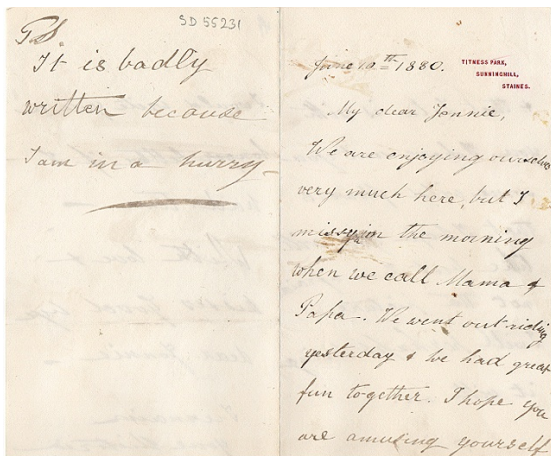 SD 55231
PS
It is badly
written because
I am in a hurry –
June 10th 1880.
TITNESS PARK,
SUNNINGHILL,
STAINES.
My dear Jonnie,
We are enjoying ourselves
very much here, but I
miss you in the morning
when we call Mama &
Papa. We went out riding
yesterday & we had great
fun together. I hope you
are amusing yourself